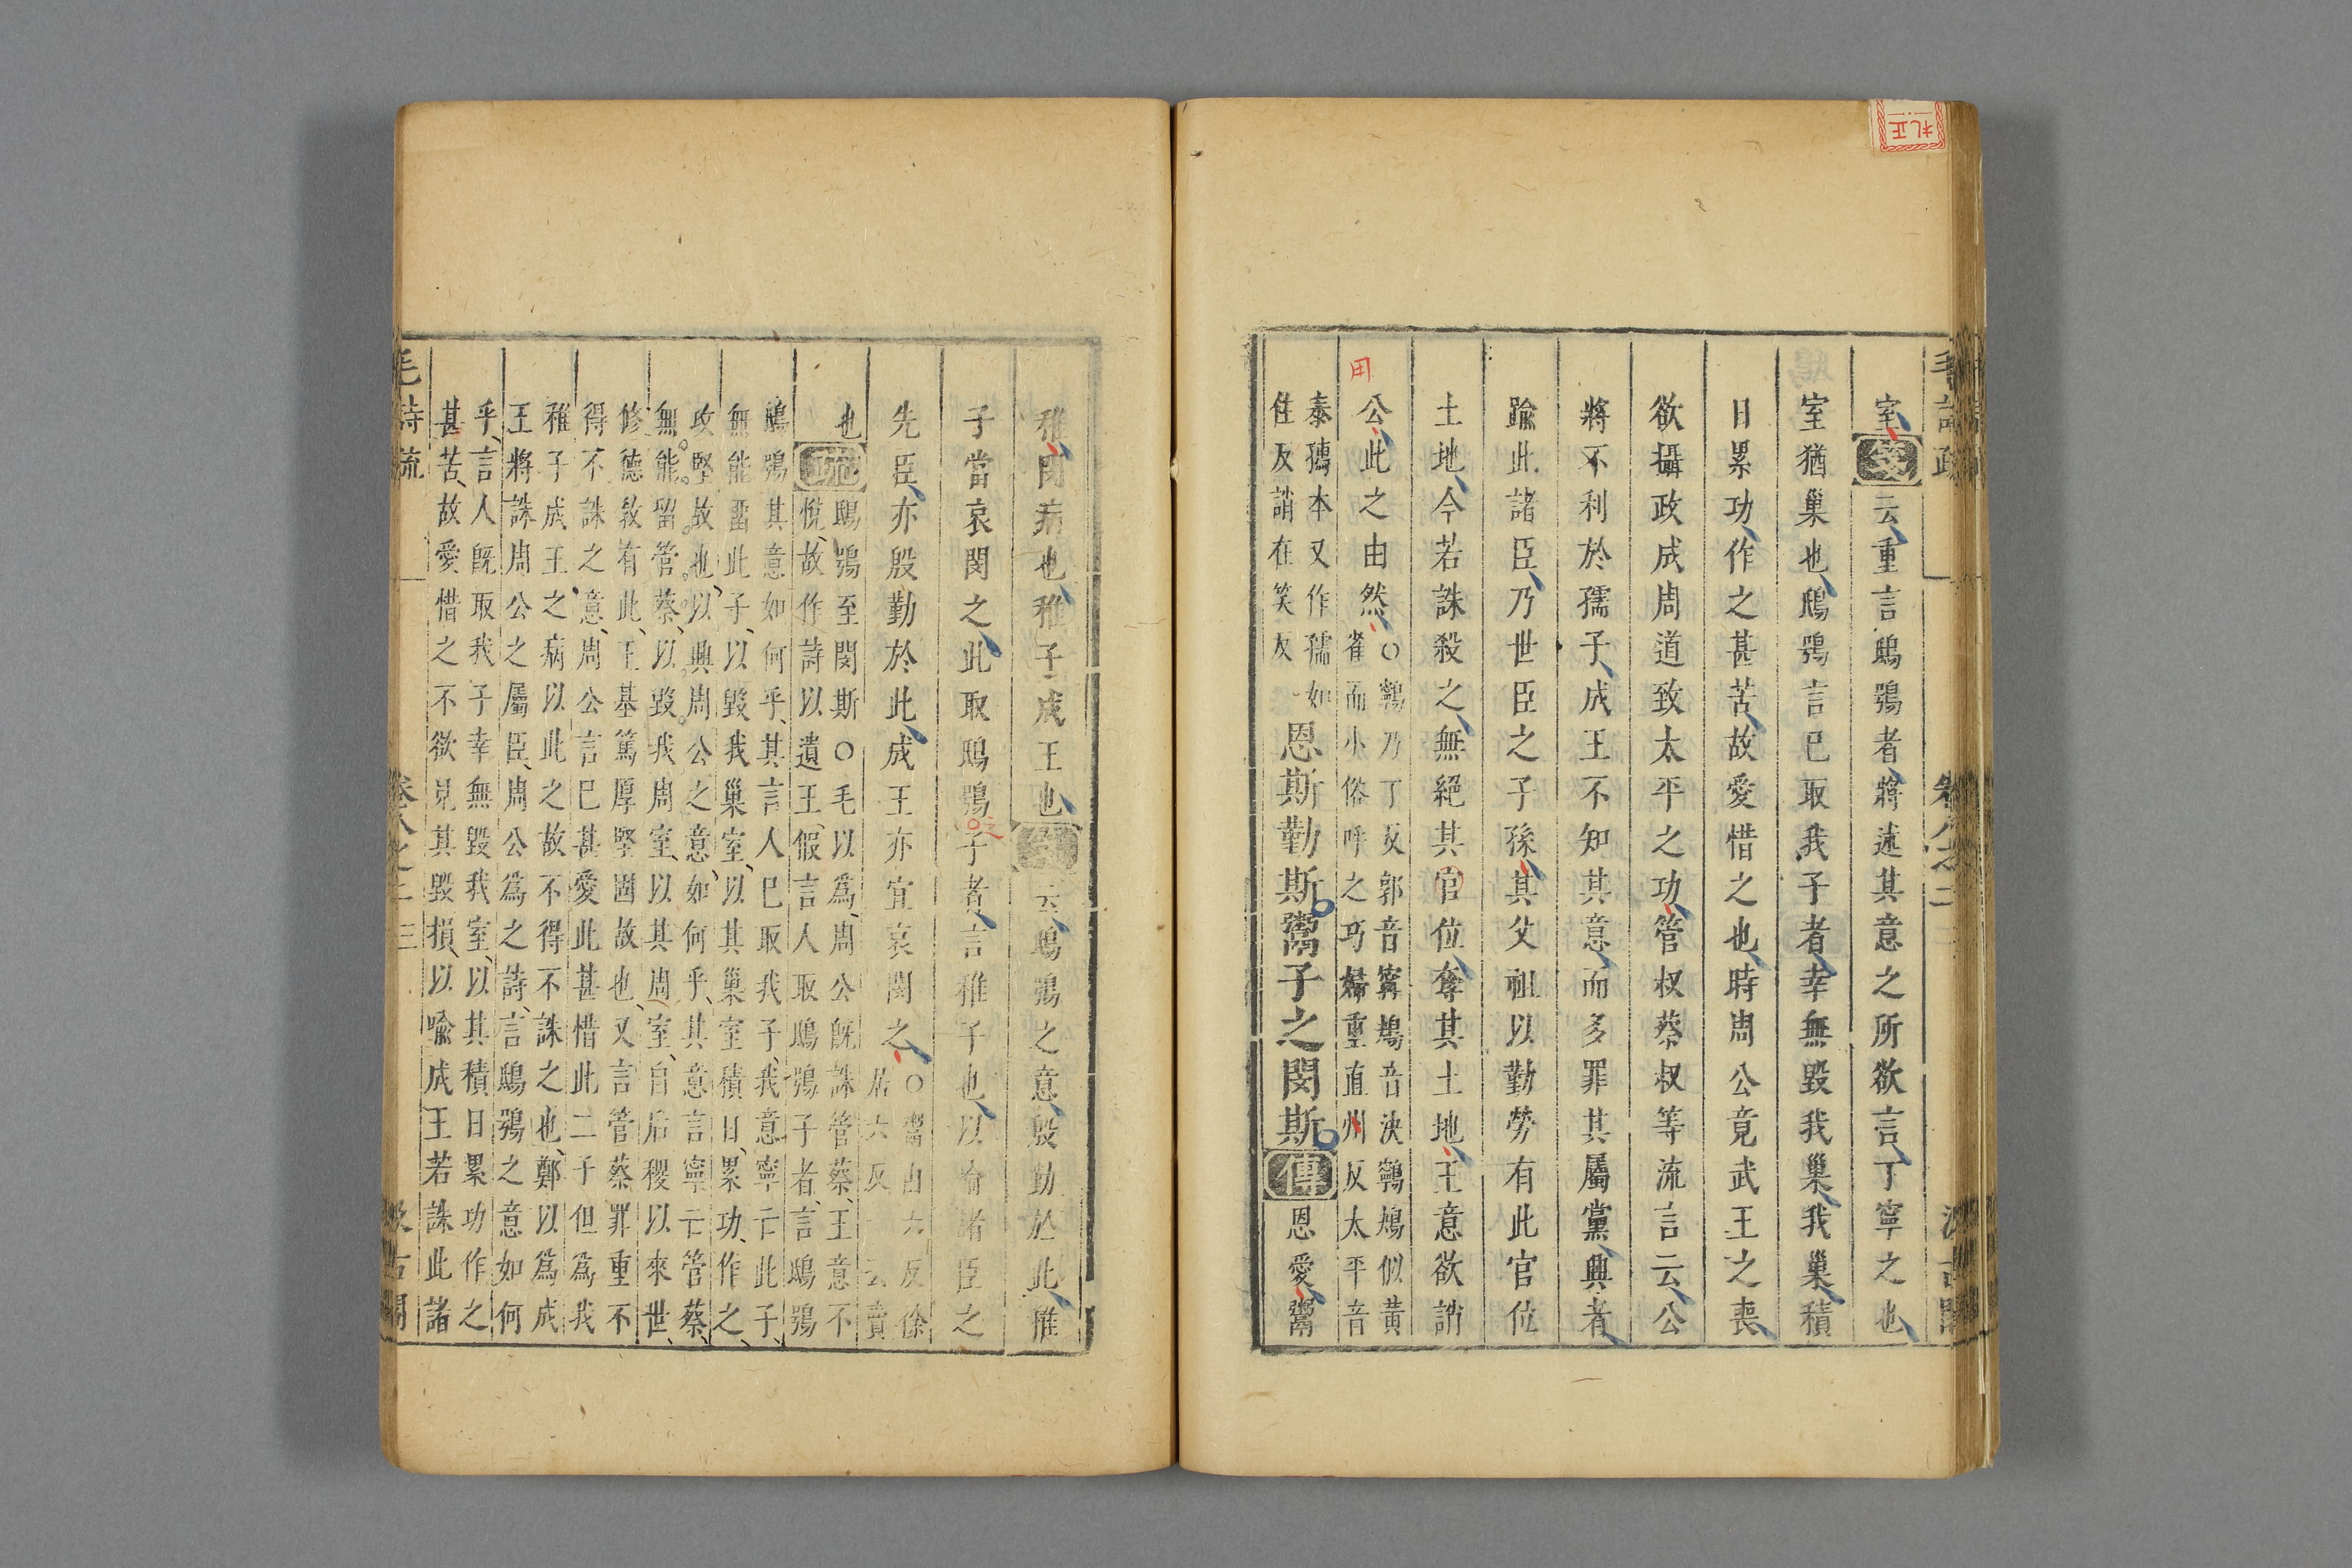 室箋云重言鴟鴞者將述其意之所欲言丁寧之也
室猶巢也鴟鴞言已取我子者幸無毀我巢我巢積
日累功作之甚苦故愛惜之也時周公竟武王之喪
欲攝政成周道致太平之功管叔蔡叔等流言云公
將不利於孺子成王不知其意而多罪其屬黨興者
踰此諸臣乃世臣之子孫其父祖以勤勞有此官位
土地今若誅殺之無絕其官位奪其土地王意欲誚
用
公此之由然○鸋乃丁反郭音甯鴂音決鸋鴂似黃
雀而小俗呼之巧婦重直州反太平音
泰孺本又作孺如
住反誚在笑反
恩斯勤斯鬻子之閔斯傳恩愛鬻
稚閔病也稚子成王也箋云鴟鴞之意殷勤於此稚
子當哀閔之此取鴟鴞子者言稚子也以喻諸臣之
先臣亦殷勤於此成王亦宜哀閔之○鬻由六反徐
居六反一云賣
也
疏鴟鴞至閔斯○毛以為周公既誅管蔡王意不
悅故作詩以遺王假言人取鴟鴞子者言鴟鴞
鴟鴞其意如何乎其言人已取我子我意寧亡此子
無能留此子以毀我巢室以其巢室積日累功作之
攻堅故也以興周公之意如何乎其意言寧亡管蔡
無能留管蔡以毀我周室以其周室自后稷以來世
修德敎有此王基篤厚堅固故也又言管蔡罪重不
得不誅之意周公言已甚愛此甚惜此二子但為我
稚子成王之病以此之故不得不誅之也鄭以為成
王將誅周公之屬臣周公為之詩言鴟鴞之意如何
乎言人旣取我子幸無毀我室以其積日累功作之
甚苦故愛惜之不欲見其毀損以喻成王若誅此諸
毛詩疏
卷八之二
三
汲古閣